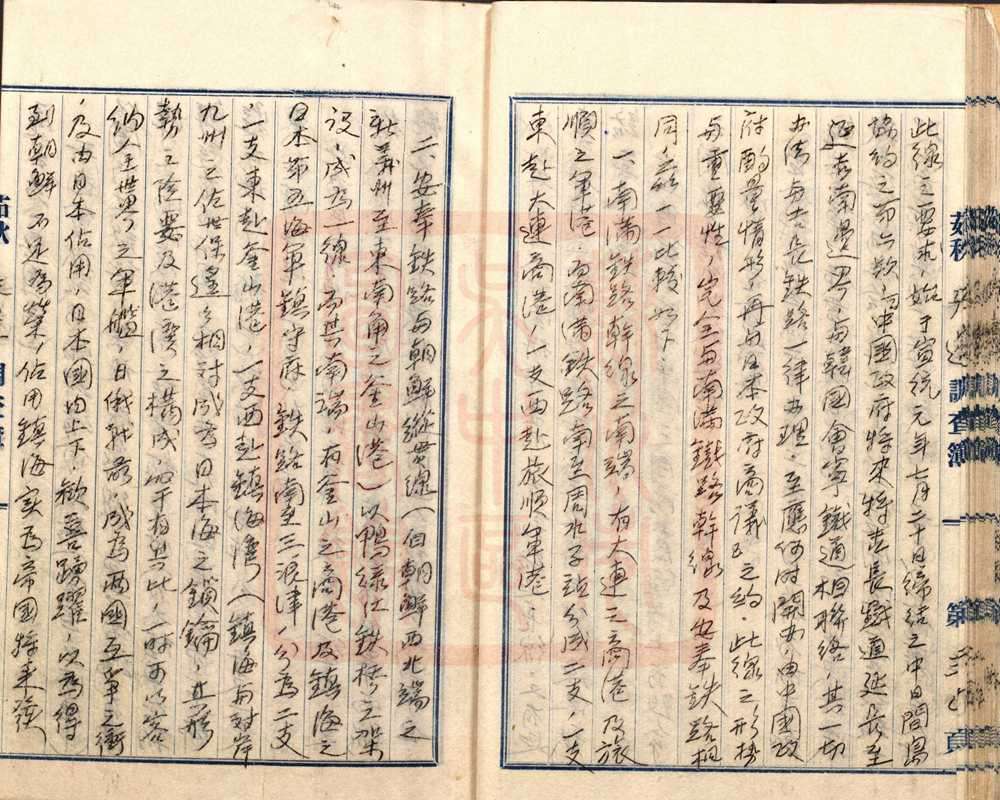 此線之要求，始于宣統元年七月二十日締結之中日間島
協約之第六款，由中國政府將來將吉長鐵道延長至
延吉南邊界，与韓國會寧鐵道相聯絡，其一切
办法，与吉長鉄路一律办理，至應何時開办，由中國政
府酌量情形，再与日本政府商議之約，此線之形勢
与重要性，完全与南滿鐵路幹線及安奉鉄路相
同，茲一一比較如下：
一、南滿鉄路幹線之南端，有大連之商港及旅
順之軍港，而南滿鉄路南至周水子站分成二支，一支
東赴大連商港，一支西赴旅順軍港，
二、安奉鉄路与朝鮮縱貫線（由朝鮮西北端之
新義州至東南角之釜山港）以鴨綠江鉄橋之架
設，成為一線，而其南端，有釜山之商港及鎮海之
日本第五海軍鎮守府，鉄路南至三浪津，分為二支
，一支東赴釜山港，一支西赴鎮海灣（鎮海与对岸
九州之佐世保遙々相对成為日本海之鎖鑰，其形
勢之险要及港灣之構成，罕有其比，一时可以容
納全世界之軍艦，日俄战前，成為兩國互爭之衝
，及由日本佔用，日本國内上下，歡喜踴躍，以為得
到朝鮮不足為榮，佔用鎮海実為帝國將来發
茹秋 調查簿 第 三七 頁